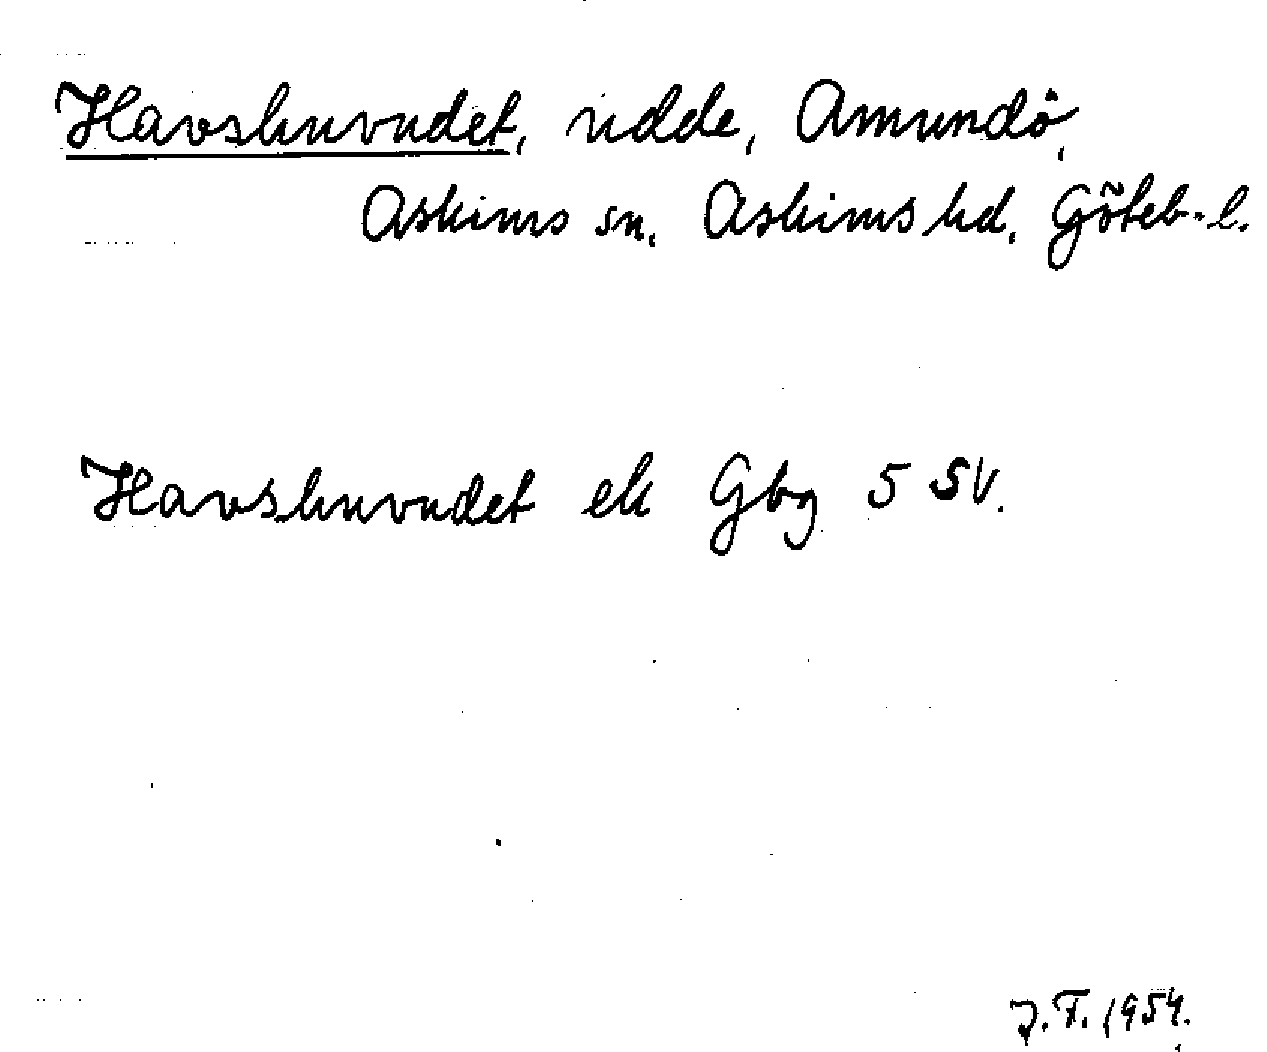 Havshuvudet, udde, Amundö,
Askims sn, Askims hd, Göteb-l.
Havshuvudet ek Gbg 5 SV.
J.T. 1954.